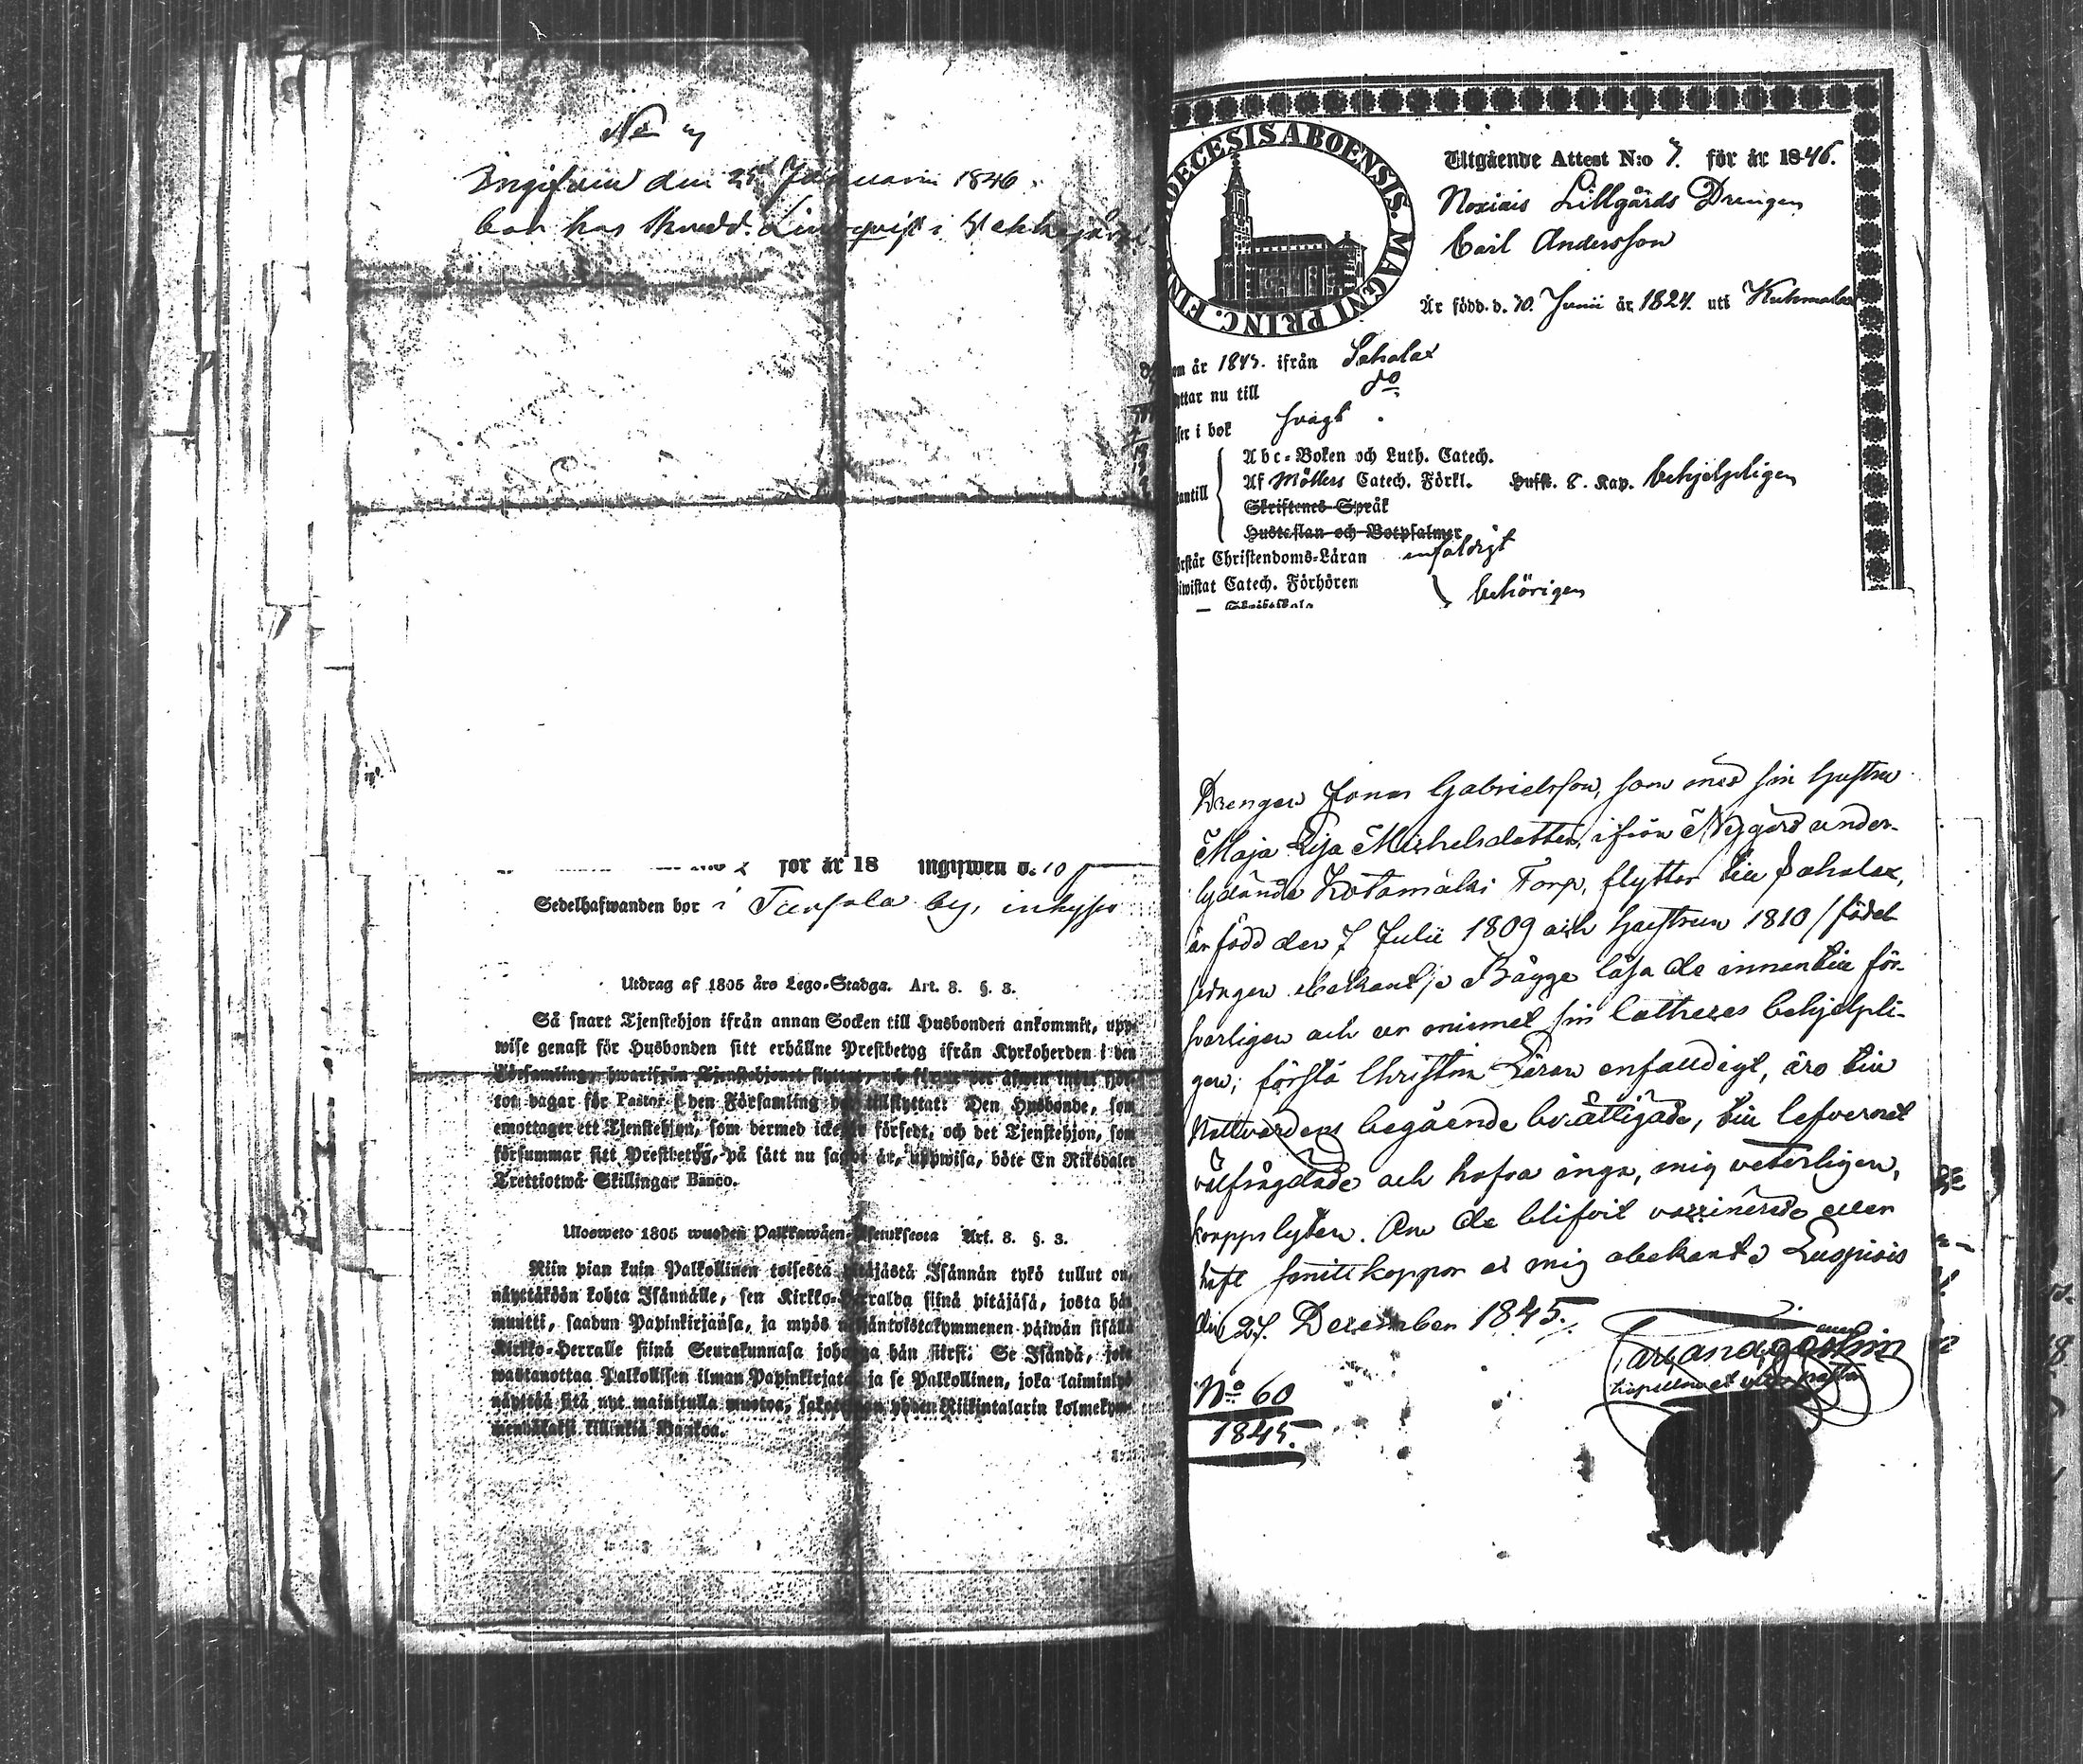 Ingifven den 25 Januarii 1846
bor hos
för år 18 ingifwen d. 10
Sedelhafwanden bor i by, inhyses
Utdrag af 1805 års Lego-Stadga. Art. 8. §. 3.
Så snart Tjenstehjon ifrån annan Socken till Husbonden ankommit, upp-
wise genast för Husbonden sitt erhållne Prestbetyg ifrån Kyrkoherden i den
Församling, hwarifrån Tjenstehjonet flyttat, och
ton dagar för Pastor i den Församling dit tillflyttat: Den Husbonde, som
emottager ett Tjenstehjon, som dermed icke är försedt, och det Tjenstehjon, som
försummar sitt Prestbetyg, på sätt nu sagdt är, uppwisa, böte En Riksdaler
Trettiotwå Skillingar Banco.
Ulosweto 1805 wuoden Palkkawäen-Asetuksesta Art. 8. §. 3.
Niin pian kuin Palkollinen toisesta pitäjästä Isännän tykö tullut on,
näyttäköön kohta Isännälle, sen Kirkko-Herralda siinä pitäjäsä, josta hän
muutti, saadun Papinkirjansa, ja myös neljäntoistakymmenen päiwän sisällä
Kirkko-Herralle siinä Seurakunnasa johonga hän siirsi: Se Isändä, joka
wastanottaa Palkollisen ilman Papinkirjata, ja se Palkollinen, joka laiminlyö
näyttää sitä nyt mainitulla muotoa, sakotetaan yhden Riikintalarin kolmekym-
mendäkaksi killinkiä Bankoa.
DIOECESIS ABOENSIS. MAGNI PRINC. FIN
Utgående Attest N:o 7. för år 1846.
Noxiais Lillgårds Drengen
Carl Andersson
Är född. d. 10. Junii år 1824. uti
om år 1845. ifrån Sahalax
yttar nu till do
ser i bok svagt
Abc-Boken och Luth. Catech.
antill Af Möllers Catech. Förkl. Husst. 8. Kap. behjelpligen
Skriftenes Språk
Hustaflan och Botpsalmer
örstår Christendoms-Läran enfaldigt
iwistat Catech. Förhören behörigen
Drengen Jonas Gabrielsson, som med sin hustru
Maja Lisa Michelsdotter, ifrån Nygård under-
lydande Kotamäki Torp, flyttar till Sahalax,
är född den 7 Julii 1809 och hustrun 1810 /födel
sedagen obekant/. Bägge läsa de innantill för-
svarligen och ur minnet sin Catheces behjelpli-
gen; förstå Christen Läran enfaldigt, äro till
Nattvardens begående berättigade, till lefvernet
välfrägdade och hafva inga, mig veterligen,
kroppslyten. Om de blifvit vaccinerade eller
haft smittkoppor är mig obekant. Luopiois
den 27. December 1845.
No 60
1845.